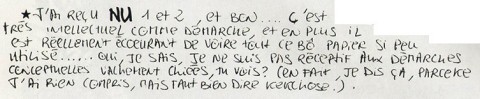 ★ J'AI REÇU NU 1 et 2, et BON.... C'EST
TRES INTELLECTUEL COMME DÉMARCHE, et EN PLUS il
EST RÉELLEMENT ECOEURANT DE VOIRE TOUT CE BÔ PAPIER SI PEU
UTILISÉ...... OUI, JE SAIS, JE NE SUIS PAS RÉCEPTIF AUX DÉMARCHES
CONCEPTUELLES VACHEMENT CHIÉES, TU VOIS? (EN FAIT, JE DIS ÇA, PARCEKE
J'AI RIEN COMPRIS, MAIS FAUT BIEN DIRE KEKCHOSE.).